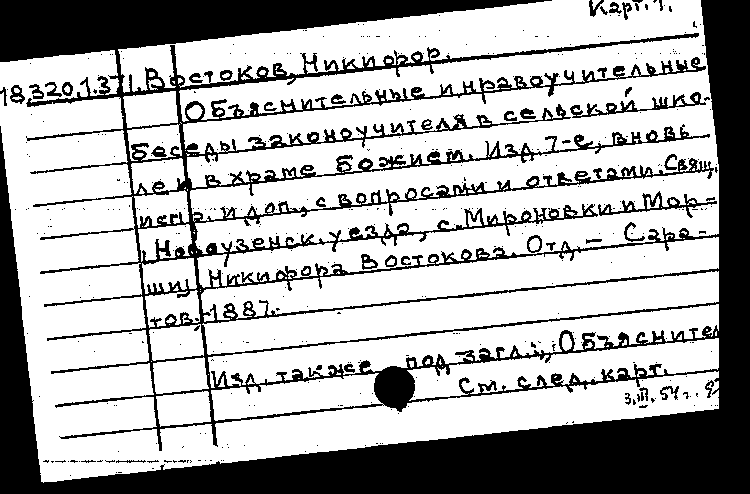 Карт. 1.
18.320.1.371. Востоков, Никифор.
Объяснительные и нравоучительные
беседы законоучителя в сельской шко-
ле и в храме Божием. Изд. 7-е, вновь
испр. и доп., с вопросами и ответами. Свящ.
Новоузенск. уезда, с. Мироновки и Мор-
шиц, Никифора Востокова. Отд. — Сара-
тов, 1887.
Изд. также под загл.: "Объяснител
См. след. карт.
3.III.54 г.